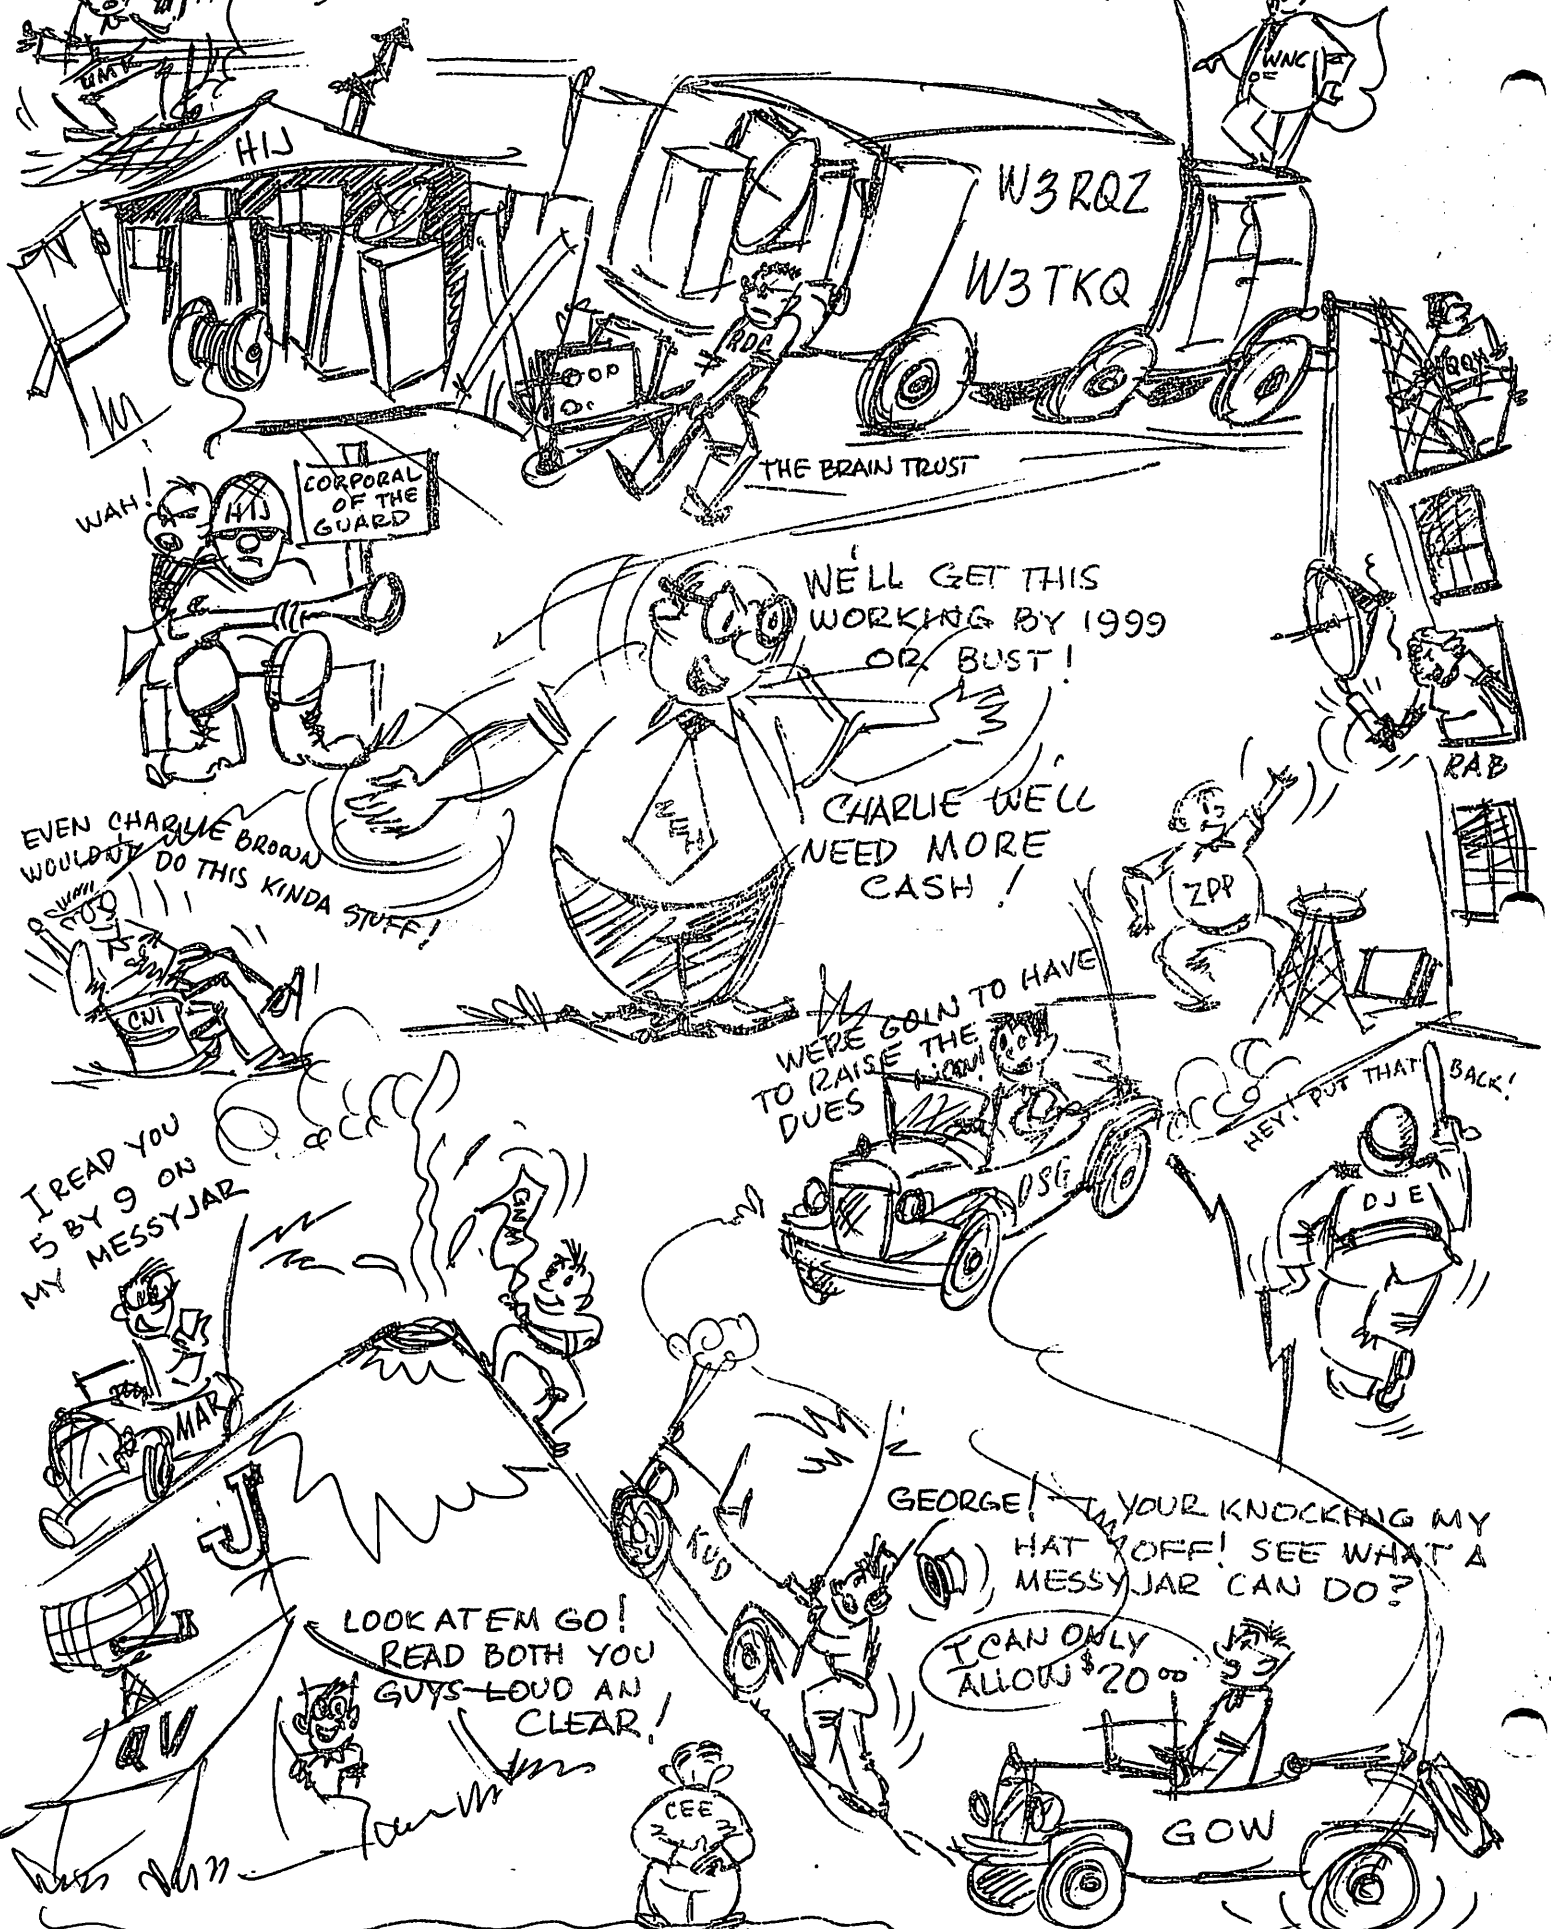 WNC
HIJ
W3RQZ
W3TKQ
RDC
QQM
THE BRAIN TRUST
CORPORAL
OF THE
GUARD
WAH!
HIJ
WE'LL GET THIS
WORKING BY 1999
OR BUST!
RAB
WEH
CHARLIE WE'LL
NEED MORE
CASH!
ZPP
EVEN CHARLIE BROWN
WOULDN'T DO THIS KINDA STUFF!
CNI
WE'RE GOIN TO HAVE
TO RAISE THE
DUES
DSG
HEY! PUT THAT BACK!
DJE
I READ YOU
5 BY 9 ON
MY MESSYJAR
GNM
MAR
J
KUD
GEORGE! YOUR KNOCKING MY
HAT OFF! SEE WHAT A
MESSYJAR CAN DO?
LOOK AT EM GO!
READ BOTH YOU
GUYS LOUD AN
CLEAR!
I CAN ONLY
ALLOW $20.00
QV
CEE
GOW